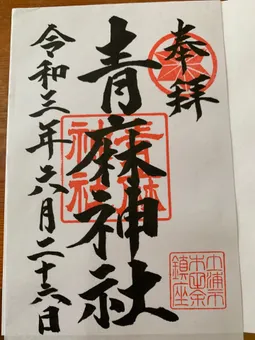 奉拝
青麻神社
令和三年六月二十六日
青麻
神社
鎮座